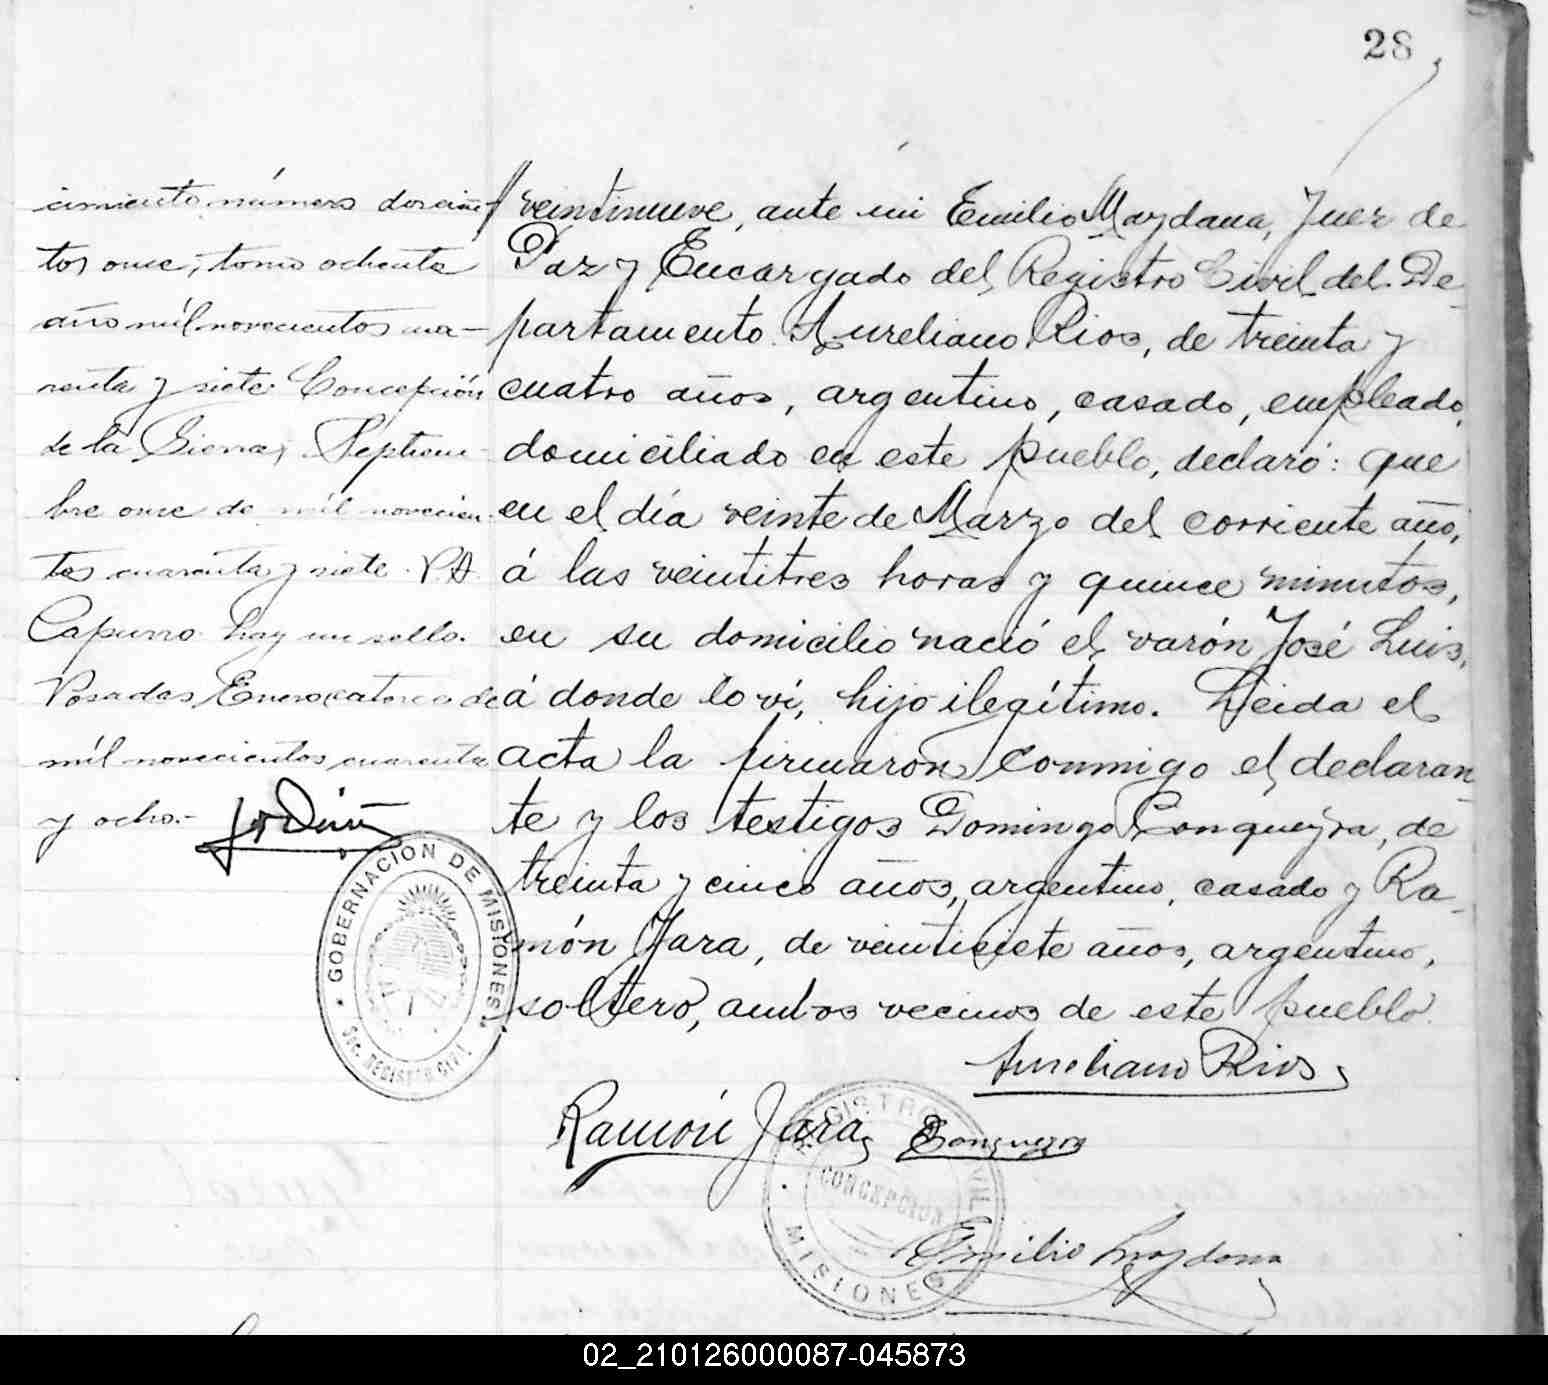 28
cimiento número doscien-
tos once, tomo ochenta
año mil novecientos cua-
renta y siete. Concepción
de la Sierra, Septiem-
bre once de mil novecien-
tos cuarenta y siete. P.A.
Capurro. hay un sello.
Posadas, Enero catorce de
mil novecientos cuarenta
y ocho.-
GOBERNACION DE MISIONES
SEC. REGISTRO CIVIL
veintinueve, ante mi Emilio Maydana, Juez de
Paz y Encargado del Registro Civil del De-
partamento Aureliano Rios, de treinta y
cuatro años, argentino, casado, empleado,
domiciliado en este pueblo, declaró: que
en el día veinte de Marzo del corriente año,
á las veintitres horas y quince minutos,
en su domicilio nació el varón José Luis,
á donde lo ví, hijo ilegítimo. Leida el
acta la firmaron conmigo el declaran-
te y los testigos Domingo Conqueyra, de
treinta y cinco años, argentino, casado y Ra-
món Jara, de veintisiete años, argentino,
soltero, ambos vecinos de este pueblo.
Aureliano Rios
Ramón Jara
Emilio Maydana
REGISTRO CIVIL
CONCEPCION
MISIONES
02_210126000087-045873